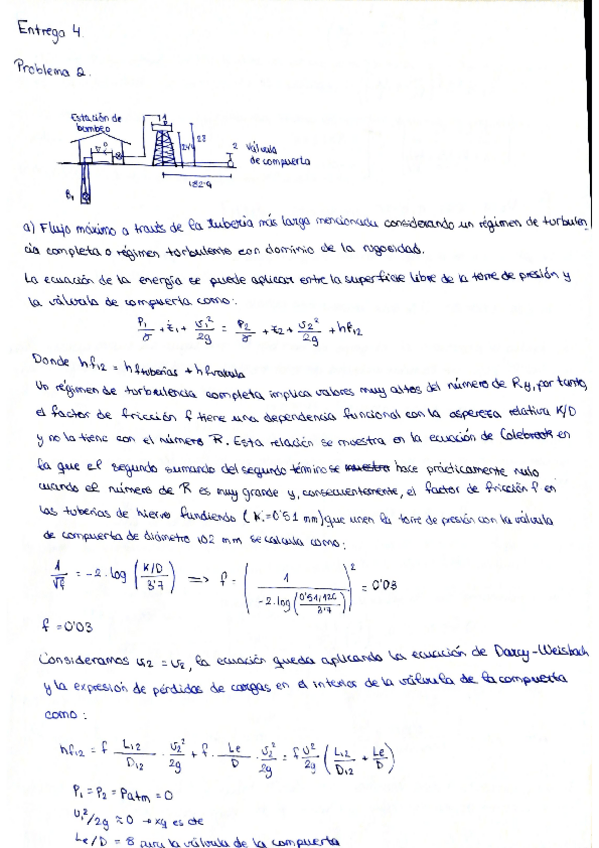 Entrega 4.
Problema 2.
Estación de
bombeo
1
23
244
2
válvula
de compuerta
182'9
a) Flujo máximo a través de la tubería más larga mencionada considerando un régimen de turbulen
cia completa o régimen turbulento con dominio de la rugosidad.
La ecuación de la energía se puede aplicar entre la superficie libre de la torre de presión y
la válvula de compuerta como:
P₁/γ + z₁ + v₁²/2g = P₂/γ + z₂ + v₂²/2g + hf₁₂
Donde hf₁₂ = hf tuberías + hf valvula
Un régimen de turbulencia completa implica valores muy altos del número de R y, por tanto,
el factor de fricción f tiene una dependencia funcional con la aspereza relativa K/D
y no la tiene con el número R. Esta relación se muestra en la ecuación de Colebrook en
la que el segundo sumando del segundo término se hace prácticamente nulo
cuando el número de R es muy grande y, consecuentemente, el factor de fricción f en
las tuberías de hierro fundido (K=0'51 mm) que unen la torre de presión con la válvula
de compuerta de diámetro 102 mm se calcula como:
1/√f = -2·log (K/D / 3'7) ⟹ f = (1 / -2·log( / 3'7))² = 0'03
f = 0'03
Consideramos v₁₂ = v₂, la ecuación queda aplicando la ecuación de Darcy-Weisbach
y la expresión de pérdidas de cargas en el interior de la válvula de la compuerta
como:
hf₁₂ = f L₁₂/D₁₂ · v₂²/2g + f · Le/D · v₂²/2g = f v²/2g (L₁₂/D₁₂ + Le/D)
P₁ = P₂ = Patm = 0
v₁²/2g ≈ 0 → xq es cte
Le/D = 8 para la válvula de la compuerta